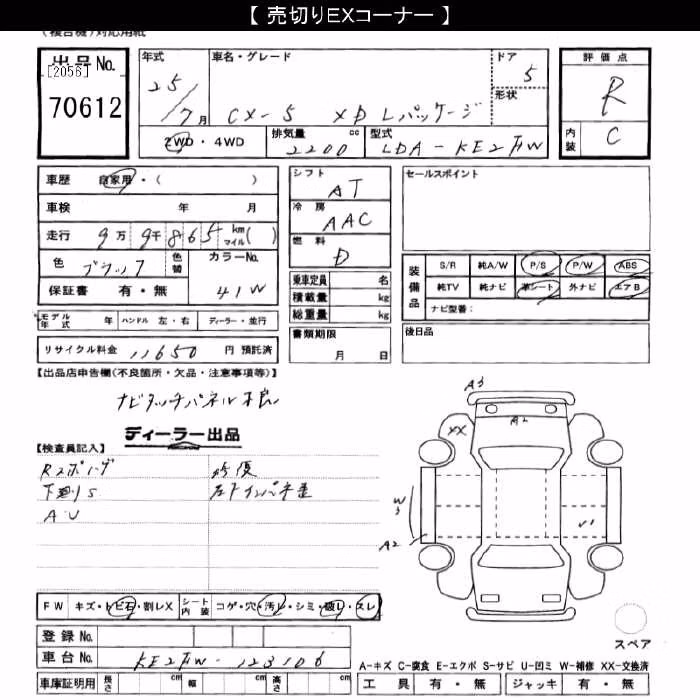 【 売切りEXコーナー 】
(複合機)対応用紙
出品No.
[2056]
70612
年式
25/7月
車名・グレード
CX-5 XD Lパッケージ
ドア
5
形状
2WD・4WD
排気量 cc
2200
型式
LDA-KE2FW
評価点
R
内装
C
車歴 自家用・( )
車検 年 月
走行 9万9千865 km マイル( )
色 ブラック
色替
カラーNo.
41W
保証書 有・無
モデル年式 年
ハンドル 左・右
ディーラー・並行
リサイクル料金 11650 円 預託済
シフト
AT
冷房
AAC
燃料
D
乗車定員 名
積載量 kg
総重量 kg
書類期限
月 日
セールスポイント
装備品
S/R 純A/W P/S P/W ABS
純TV 純ナビ 革シート 外ナビ エアB
ナビ型番:
後日品
【出品店申告欄(不良箇所・欠品・注意事項等)】
ナビタッチパネル不良
ディーラー出品
【検査員記入】
下廻りS
AU
修復
FW キズ・トビ石・割レX
シート内装 コゲ・穴・汚レ・シミ・破レ・スレ
登録No.
車台No. KE2FW-123106
車庫証明用 長さ cm 幅 cm 高さ cm
A3
A2
XX
W3
A2
U1
スペア
A-キズ C-腐食 E-エクボ S-サビ U-凹ミ W-補修 XX-交換済
工具 有・無 ジャッキ 有・無